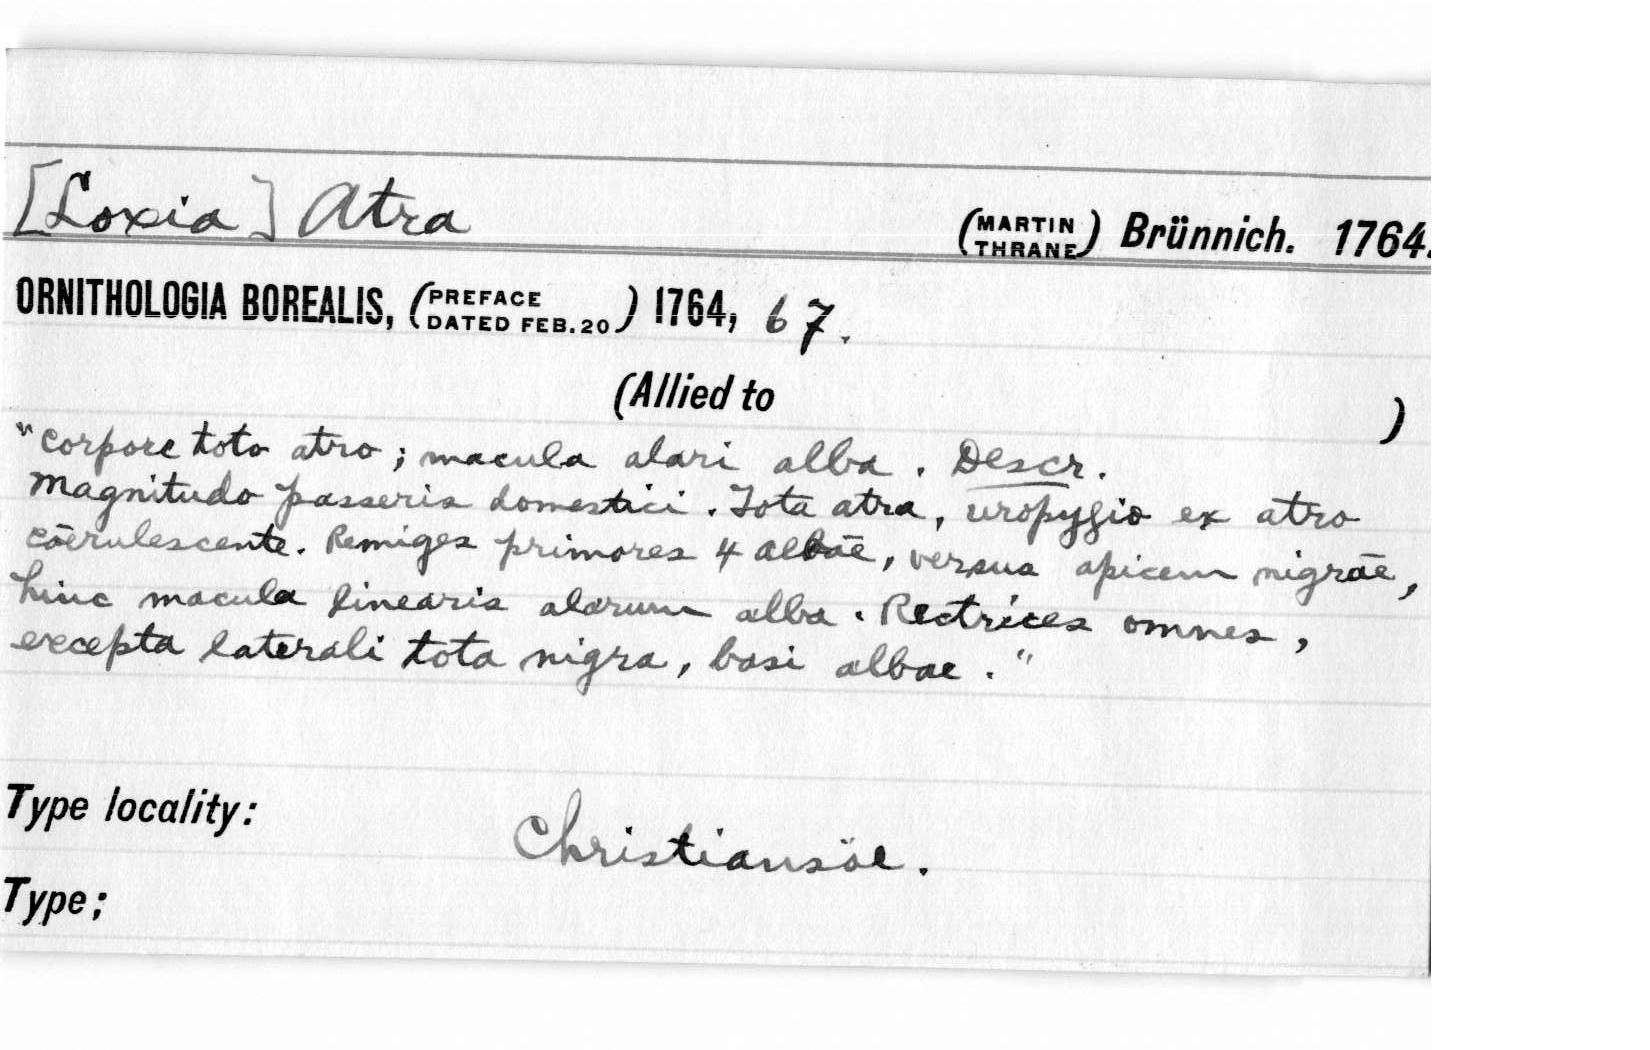 [Loxia] Atra (MARTIN THRANE) Brünnich. 1764.
ORNITHOLOGIA BOREALIS, (PREFACE DATED FEB. 20) 1764, 67.
(Allied to )
"Corpore toto atro; macula alari alba. Descr.
Magnitudo passeris domestici. Tota atra, uropygio ex atro
cōerulescente. Remiges primores 4 albāe, versus apicem nigrāe,
hinc macula linearis alarum alba. Rectrices omnes,
excepta laterali tota nigra, basi albae."
Type locality: Christiansöe.
Type;